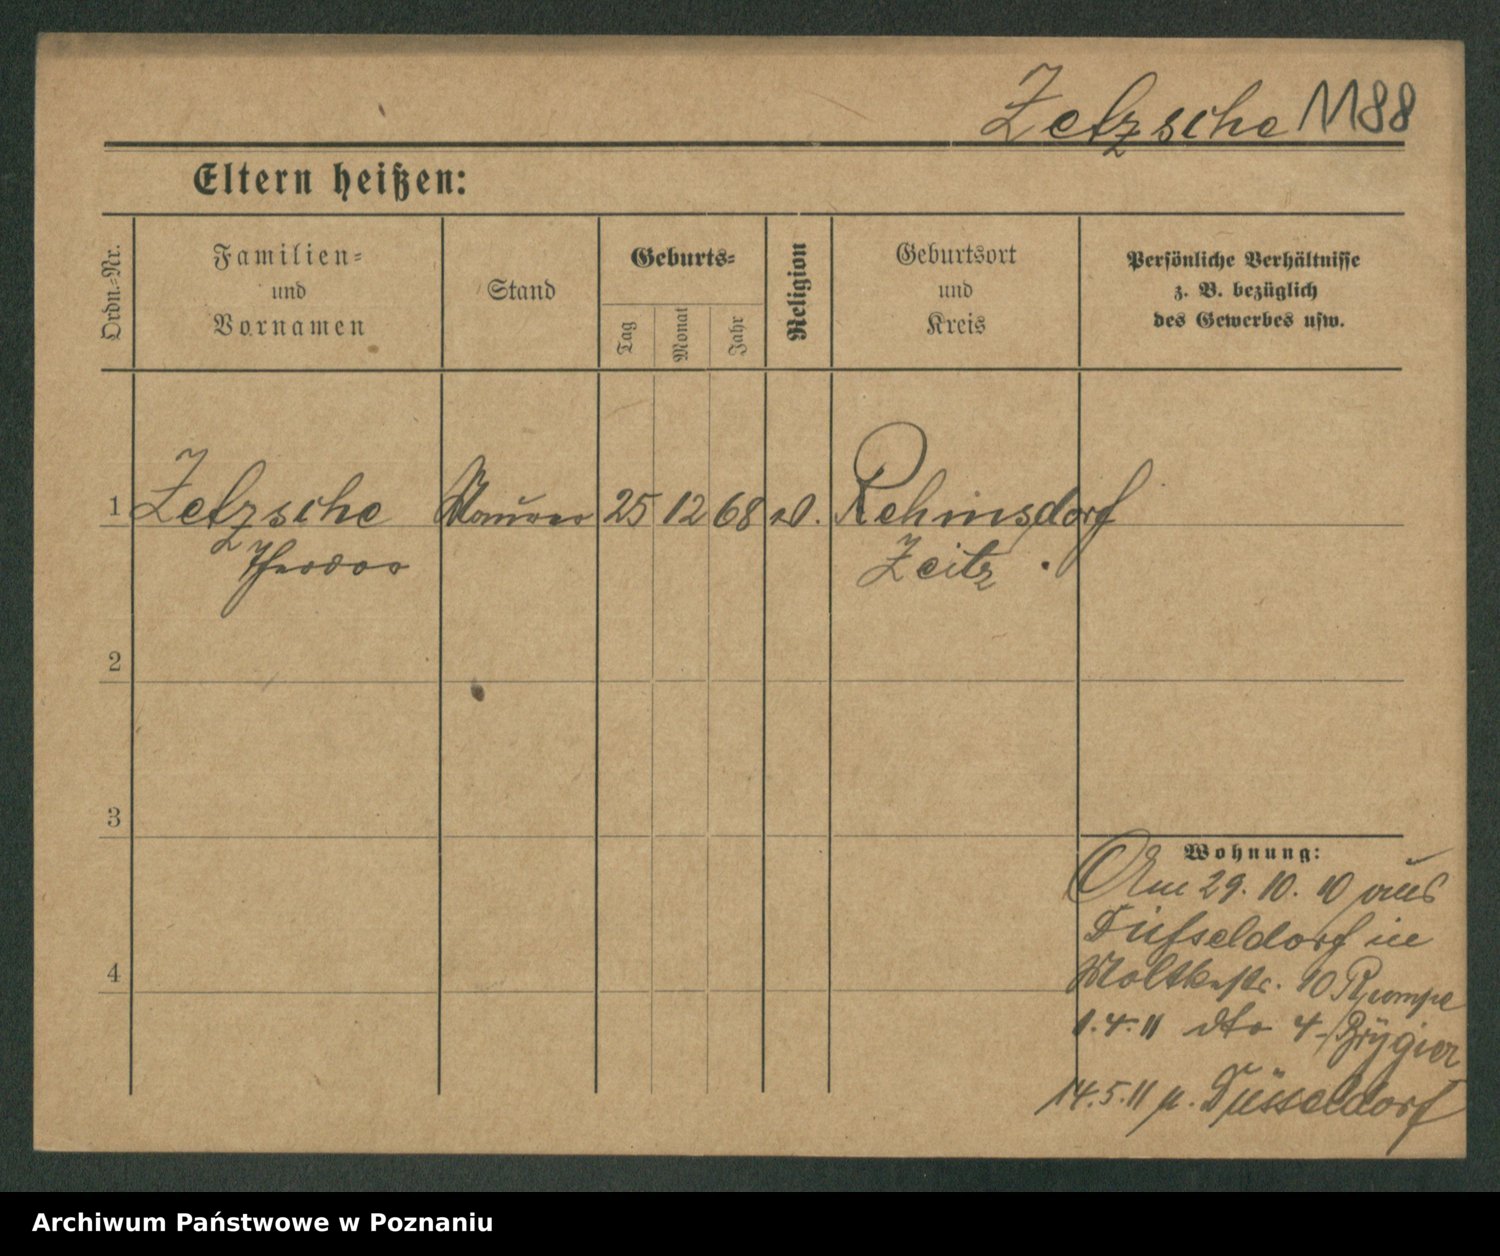 Zetzsche 1188
Eltern heißen:
Ordn.-Nr.
Familien-
und
Vornamen
Stand
Geburts-
Tag
Monat
Jahr
Religion
Geburtsort
und
Kreis
Persönliche Verhältnisse
z. B. bezüglich
des Gewerbes usw.
1 Zetzsche Maurer 25 12 68 Rehmsdorf
Theodor Zeitz
2
3
4
Wohnung:
Am 29. 10. 10 aus
Düsseldorf in
Moltkestr. 10 Rumpe
1.4.11 dto 4
14.5.11 n. Düsseldorf
Archiwum Państwowe w Poznaniu